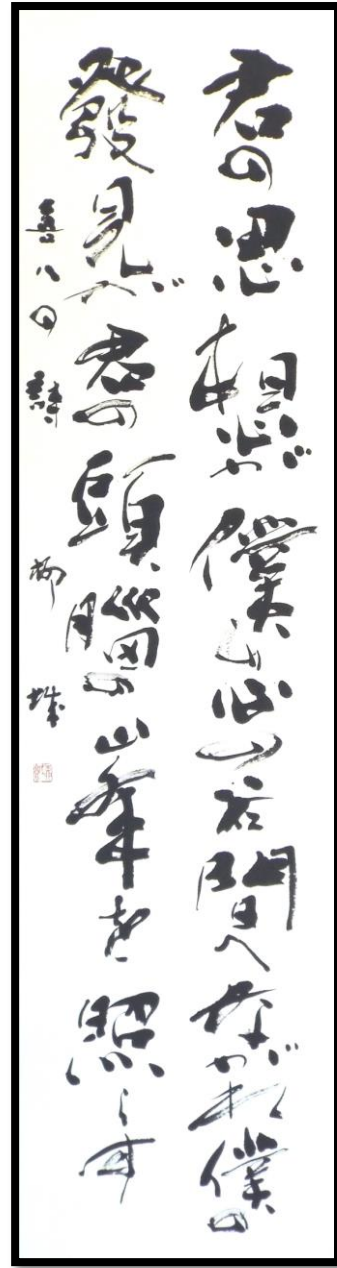 君の思想が僕の心の谷間へながれ僕の
發見が君の頭腦の峯を照らす
喜八の詩 柳城